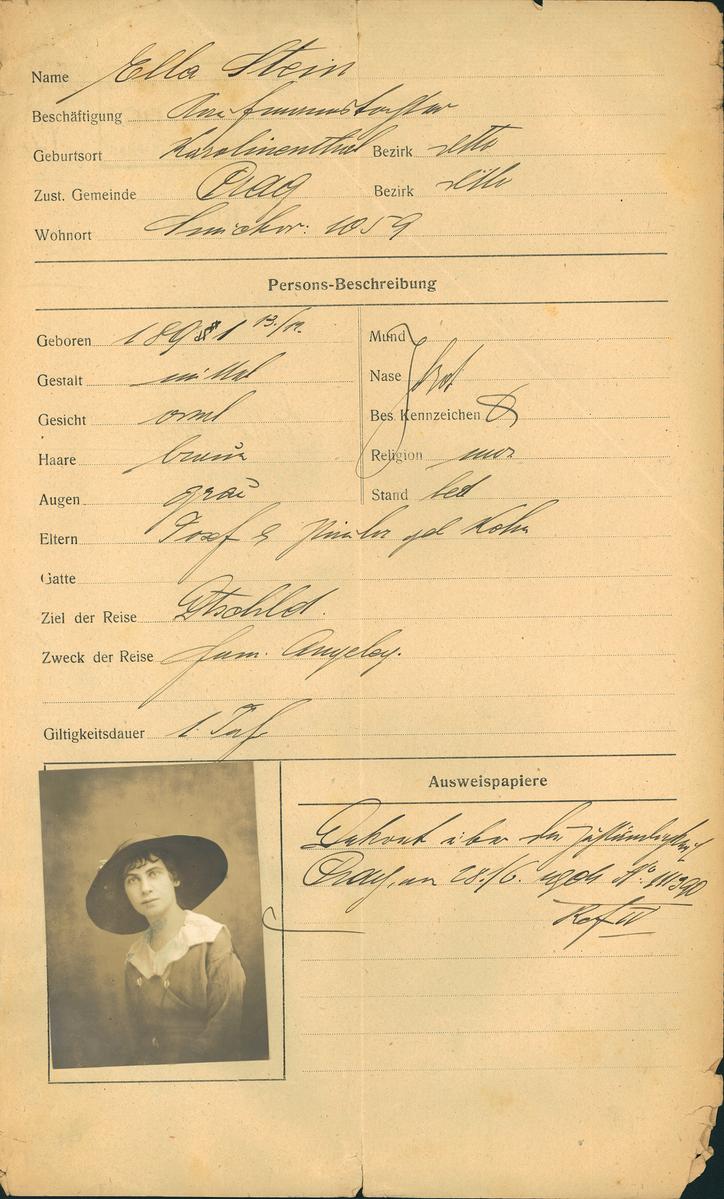 Name Ella Stein
Beschäftigung Kaufmannstochter
Geburtsort Karolinenthal Bezirk detto
Zust. Gemeinde Prag Bezirk detto
Wohnort 1059
Persons-Beschreibung
Geboren 1891 13./12.
Mund
Gestalt mittel
Nase prop
Gesicht oval
Bes. Kennzeichen
Haare braun
Religion mos
Augen grau
Stand led
Eltern Josef & geb Kohn
Gatte
Ziel der Reise Dtschld.
Zweck der Reise Fam. Angeleg.
Giltigkeitsdauer 1. Jahr
Ausweispapiere
Dekret über die Zuständigkeit
Prag, am 28./6. 1906 No: